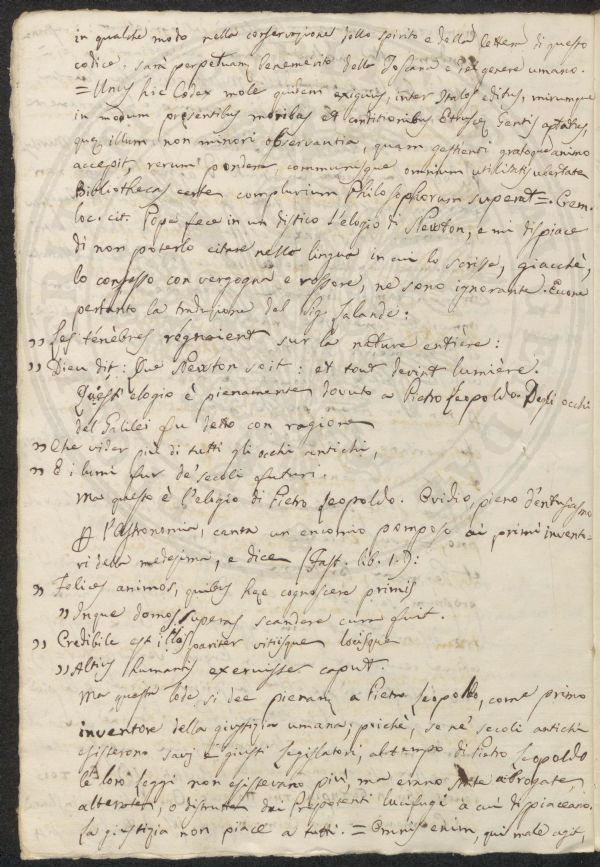 in qualche modo nella conservazione dello spirito e della lettera di questo
codice: sarà perpetuam. benemerito della Toscana e del genere umano.
= Unus hic Codex mole quidem exiguus, inter Italos editus, mirumque
in modum presentibus moribus et conditionibus Etruscę Gentis aptatus,
quę illum, non minori observantia, quam gestienti gratoque animo
accepit, rerum pondere, communisque omnium utilitatis ubertate
Bibliothecas certe complurium Philosophorum superat =. Crem.
loc. cit. Pope fece in un distico l'elogio di Newton, e mi dispiace
di non poterlo citare nella lingua in cui lo scrisse, giacchè,
lo confesso con vergogna e rossore, ne sono ignorante. Eccone
pertanto la traduzione del Sig. Lalande:
" Les ténèbres régnaient sur la nature entière:
" Dieu dit: Que Newton soit: et tout devint lumière.
Quest'elogio è pienamente dovuto a Pietro Leopoldo. Degli occhi
del Galilei fu detto con ragione
" Che vider più di tutti gli occhi antichi,
" E i lumi fur de' secoli futuri.
Ma questo è l'elogio di Pietro Leopoldo. Ovidio, pieno d'entusiasmo
p l'Astronomia, canta un encomio pomposo ai primi invento-
ri della medesima, e dice (Fast. lib. 1.):
" Felices animos, quibus hęc cognoscere primis
" Inque domos superas scandere cura fuit.
" Credibile est illos pariter vitiisque locisque
" Altius humanis exeruisse caput.
Ma questa lode si dee pienam. a Pietro Leopoldo, come primo
inventore della giustizia umana; poichè, se ne' secoli antichi
esisterono savj e giusti Legislatori, al tempo di Pietro Leopoldo
le loro leggi non esistevano più, ma erano state abrogate,
alterate, o distrutte dai Prepotenti lucifugi a cui dispiaceano.
La giustizia non piace a tutti. = Omnis enim, qui male agit,